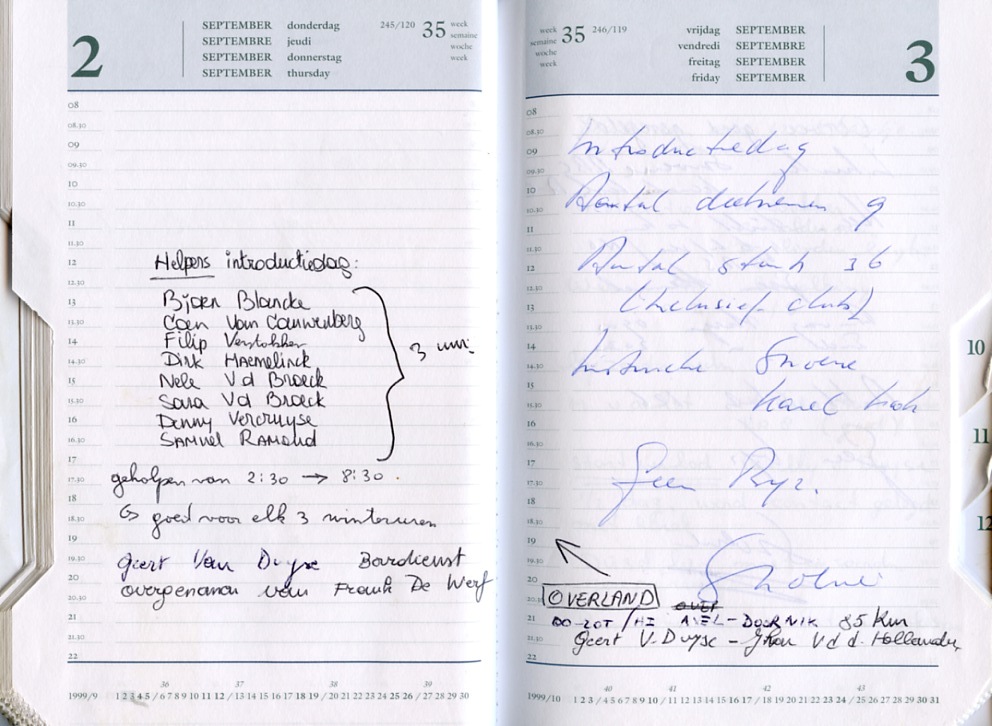 2
SEPTEMBER donderdag
SEPTEMBRE jeudi
SEPTEMBER donnerstag
SEPTEMBER thursday
245/120
35 week
semaine
woche
week
08
08.30
09
09.30
10
10.30
11
11.30
12
12.30
13
13.30
14
14.30
15
15.30
16
16.30
17
17.30
18
18.30
19
19.30
20
20.30
21
21.30
22
Helpers introductiedag:
Bjorn Blancke
Coen Van Cauwenberg
Filip Verstokker
Dirk Haemelinck
Nele Vd Broeck
Sara Vd Broeck
Denny Vercruyse
Samuel Ramond
3 uur
geholpen van 2:30 → 8:30.
goed voor elk 3 winteruren
Geert Van Duyse Bardienst
overgenomen van Frank De Werf
36 37 38 39
1999/9 1 2 3 4 5 / 6 7 8 9 10 11 12 / 13 14 15 16 17 18 19 / 20 21 22 23 24 25 26 / 27 28 29 30
week
semaine
woche
week
35 246/119
vrijdag SEPTEMBER
vendredi SEPTEMBRE
freitag SEPTEMBER
friday SEPTEMBER
3
08
08.30
09
09.30
10
10.30
11
11.30
12
12.30
13
13.30
14
14.30
15
15.30
16
16.30
17
17.30
18
18.30
19
19.30
20
20.30
21
21.30
22
Introductiedag
Aantal deelnemers 9
Aantal starts 36
(inclusief clubs)
Karel
Geen
OVERLAND
OO-ZOT / HZ AXEL-DOORNIK 85 Km
Geert V. Duyse - Vd d. Hollander
40 41 42 43
1999/10 1 2 3 / 4 5 6 7 8 9 10 / 11 12 13 14 15 16 17 / 18 19 20 21 22 23 24 / 25 26 27 28 29 30 31
10
11
12